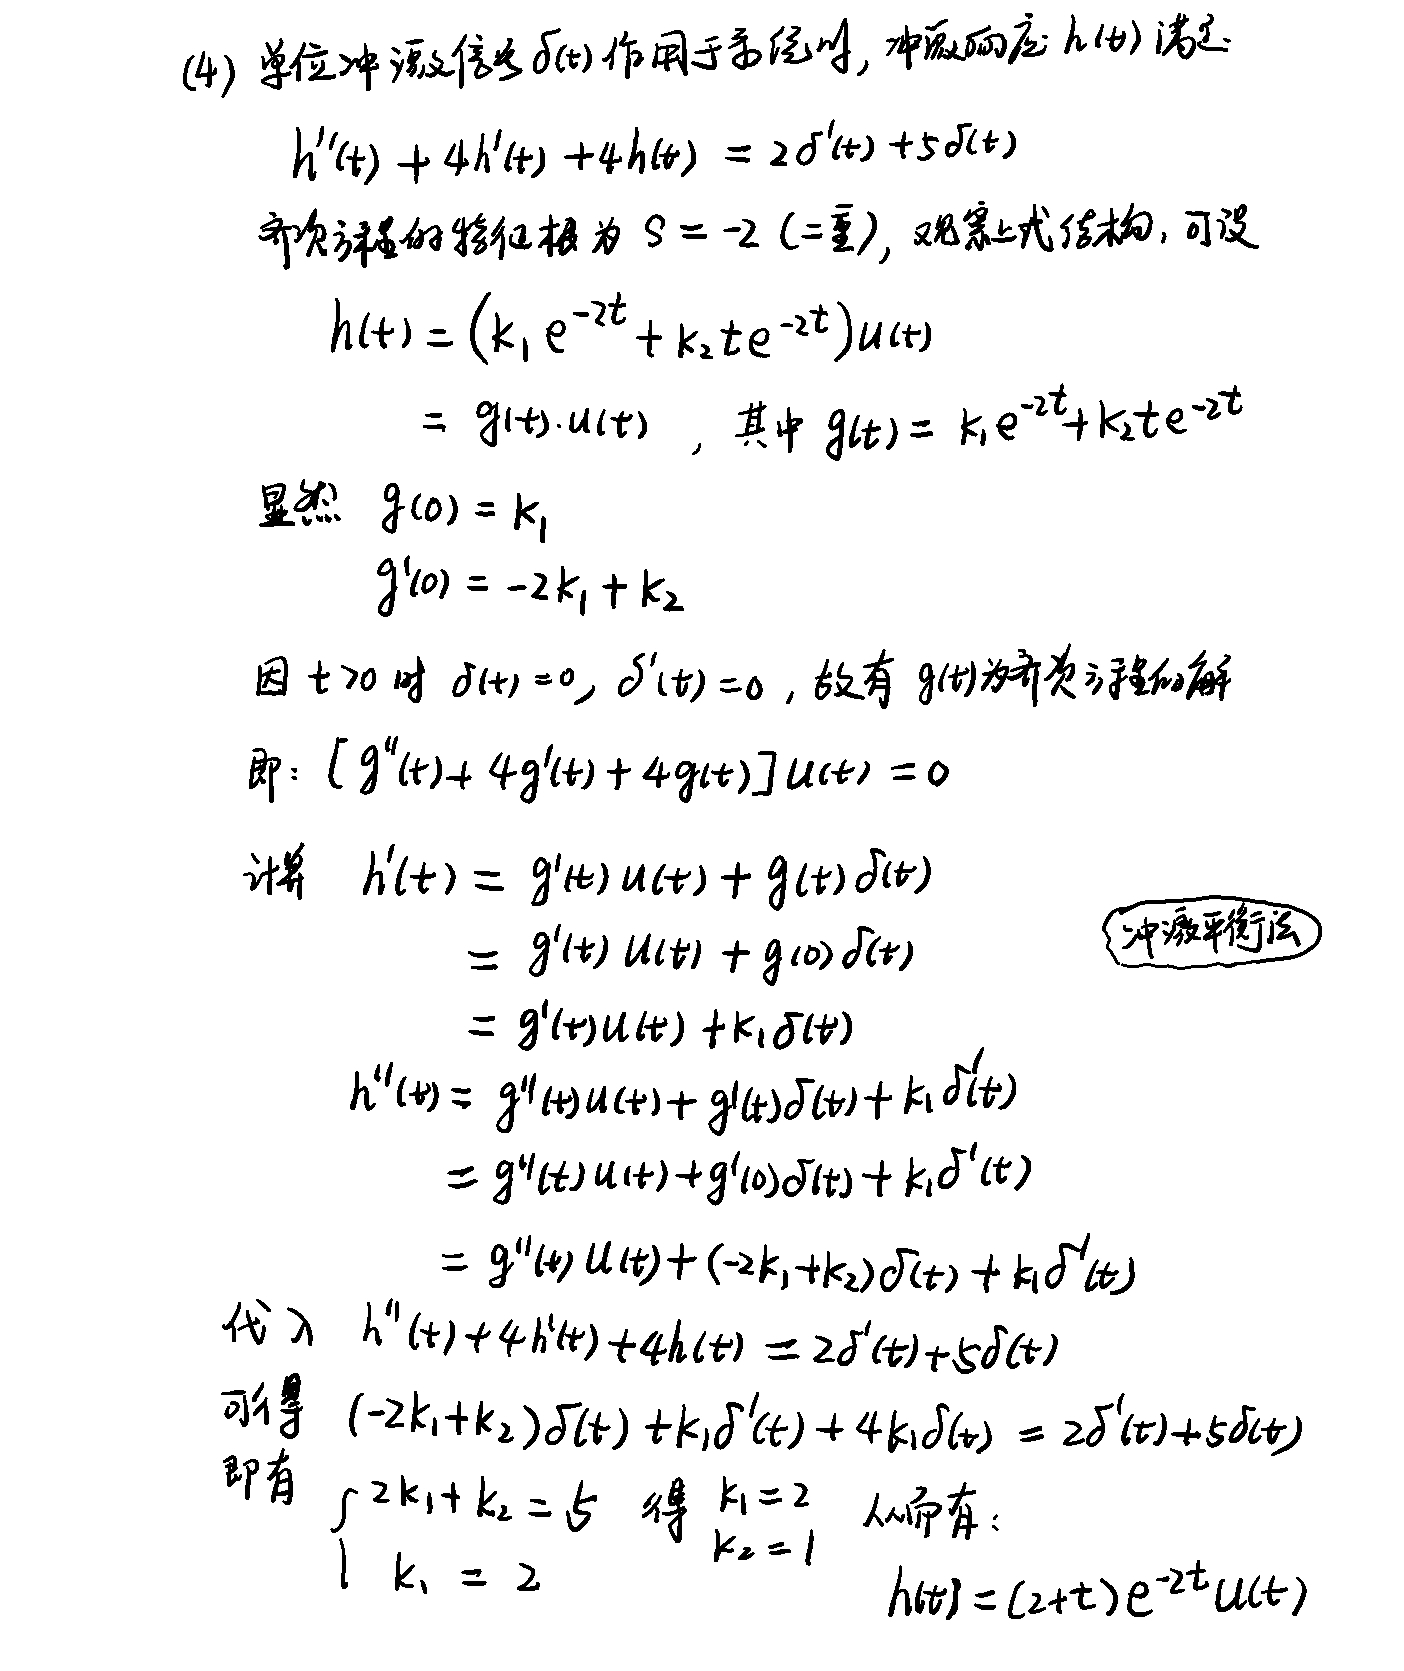 (4) 单位冲激信号δ(t)作用于系统时, 冲激响应h(t)满足:
h''(t) + 4h'(t) + 4h(t) = 2δ'(t) + 5δ(t)
齐次方程的特征根为 S = -2 (二重), 观察上式结构, 可设
h(t) = (k₁e^{-2t} + k₂te^{-2t})u(t)
= g(t)·u(t) , 其中 g(t) = k₁e^{-2t} + k₂te^{-2t}
显然 g(0) = k₁
g'(0) = -2k₁ + k₂
因 t>0 时 δ(t)=0, δ'(t)=0, 故有 g(t)为齐次方程的解
即: [g''(t) + 4g'(t) + 4g(t)]u(t) = 0
计算 h'(t) = g'(t)u(t) + g(t)δ(t)
冲激平衡法
= g'(t)u(t) + g(0)δ(t)
= g'(t)u(t) + k₁δ(t)
h''(t) = g''(t)u(t) + g'(t)δ(t) + k₁δ'(t)
= g''(t)u(t) + g'(0)δ(t) + k₁δ'(t)
= g''(t)u(t) + (-2k₁+k₂)δ(t) + k₁δ'(t)
代入 h''(t) + 4h'(t) + 4h(t) = 2δ'(t) + 5δ(t)
可得 (-2k₁+k₂)δ(t) + k₁δ'(t) + 4k₁δ(t) = 2δ'(t) + 5δ(t)
即有 { 2k₁ + k₂ = 5 得 k₁ = 2 从而有:
k₁ = 2 k₂ = 1
h(t) = (2+t)e^{-2t}u(t)